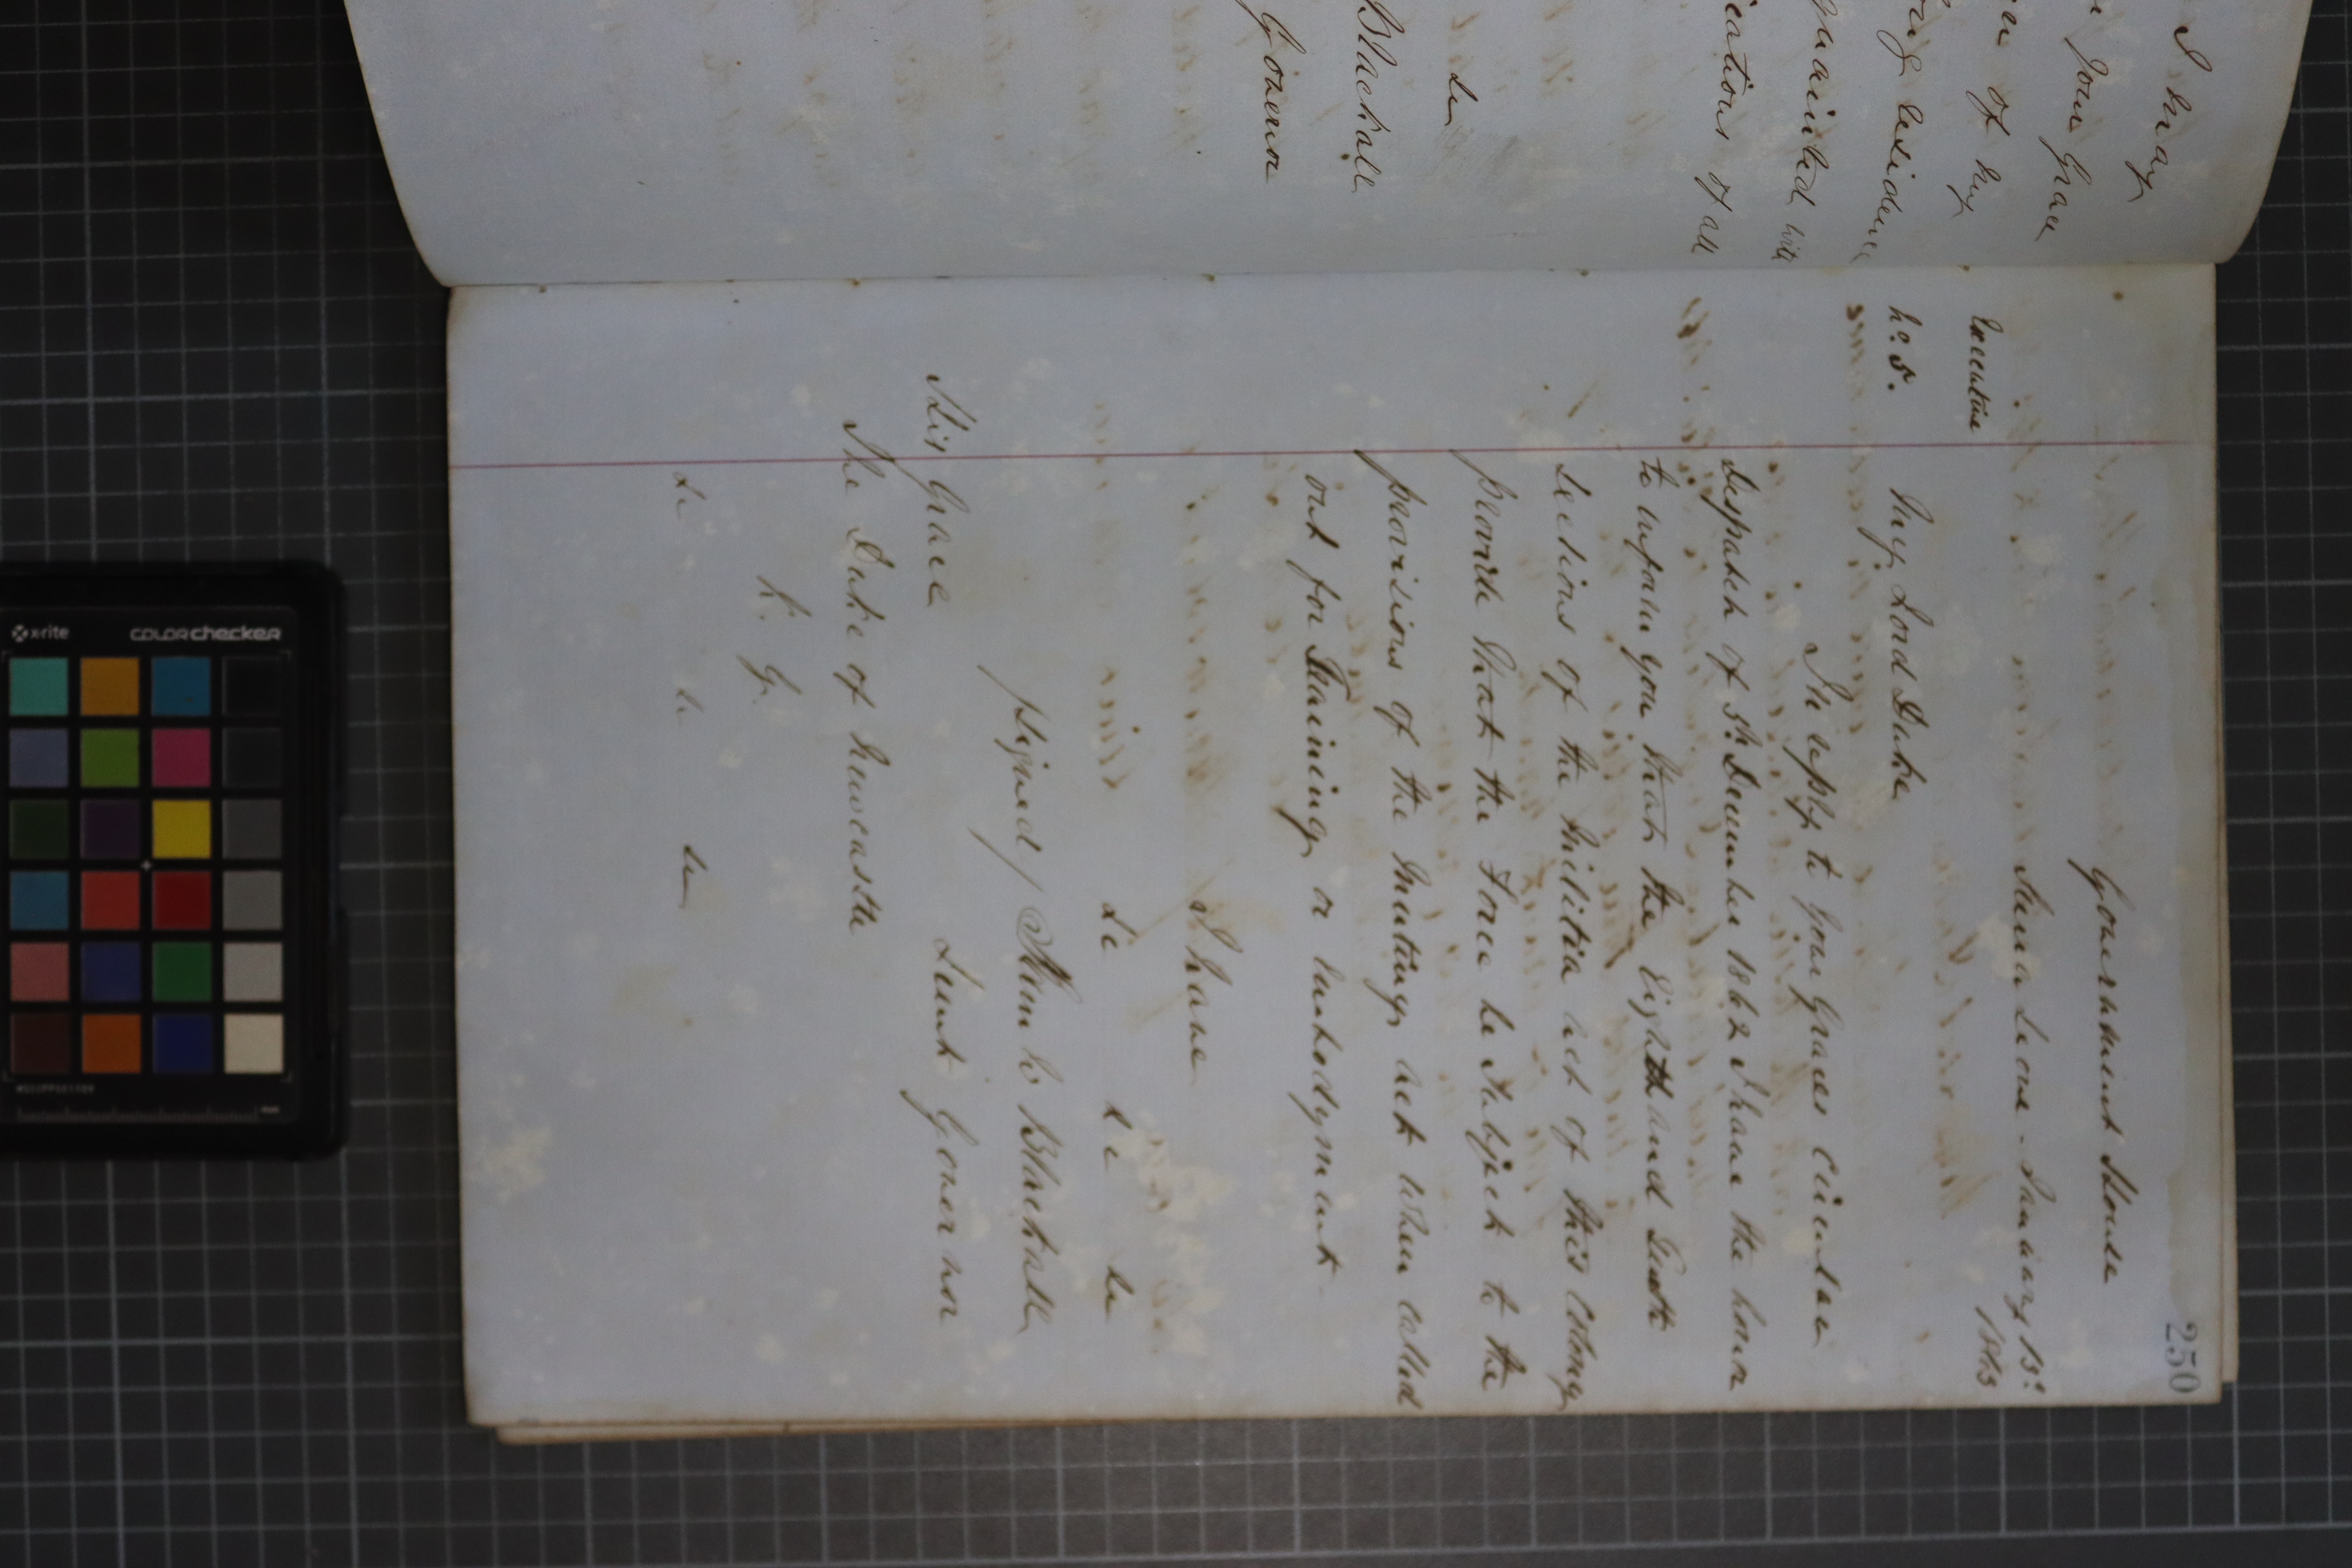 I may
Your Grace
of my
residence
quainted with
ications of all
&c
Blackall
Governor
250
Government House
Sierra Leone. January 13th
1863
Executive
No. 5.
My Lord Duke
In reply to Your Graces Circular
Despatch of 5th December 1862 I have the honor
to inform you that the Eighth and Tenth
Sections of the Militia Act of this Colony
provide that the Force be Subject to the
provisions of the Mutiny Act when called
out for Training or Embodyment.
I have
&c &c &c
Signed/ Blackall
Lieut Governor
His Grace
The Duke of Newcastle
K. G.
&c &c &c
x-rite
colorchecker